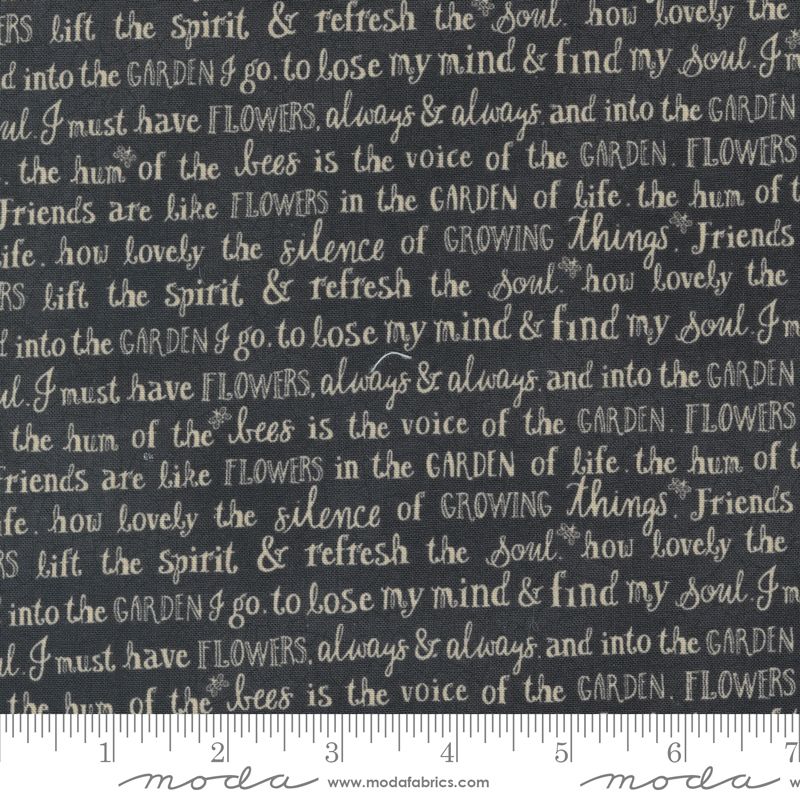 ERS lift the spirit & refresh the soul. how lovely the
d into the GARDEN I go. to lose my mind & find my soul. I m
ul. I must have FLOWERS, always & always. and into the GARDEN
. the hum of the bees is the voice of the GARDEN. FLOWERS
Friends are like FLOWERS in the GARDEN of life. the hum of t
ife. how lovely the silence of GROWING things. Friends
RS lift the spirit & refresh the soul. how lovely the
d into the GARDEN I go. to lose my mind & find my soul. I m
ul. I must have FLOWERS, always & always. and into the GARDEN
the hum of the bees is the voice of the GARDEN. FLOWERS
Friends are like FLOWERS in the GARDEN of life. the hum of t
ife. how lovely the silence of GROWING things. Friends
RS lift the spirit & refresh the soul. how lovely the
into the GARDEN I go. to lose my mind & find my soul. I m
ul. I must have FLOWERS, always & always. and into the GARDEN
the hum of the bees is the voice of the GARDEN. FLOWERS
1 2 3 4 5 6 7
moda www.modafabrics.com moda w